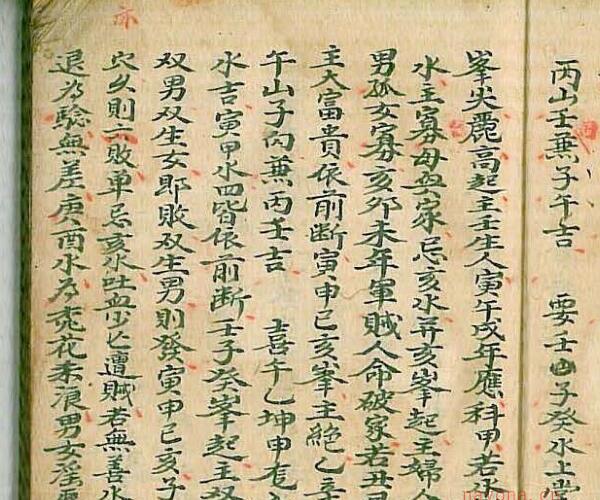 丙山壬兼子午吉　要壬子癸水上堂
峯尖麗高起主壬生人寅午戌年應科甲若水
水主寡母与家忌亥水并亥峯起主婦人
男孤女寡亥卯未年軍賊人命破家若丑艮
主大富貴依前断寅申巳亥峯主絶乙辛
午山子向兼丙壬吉　喜午乙坤申
水吉寅甲水四皆依前断壬子癸峯起主双
双男双生女即敗双生男則發寅申巳亥子
穴么則一敗單忌亥水吐血少亡遭賊若無善水
退为驗無差庚酉水为禿花柔浪男女淫